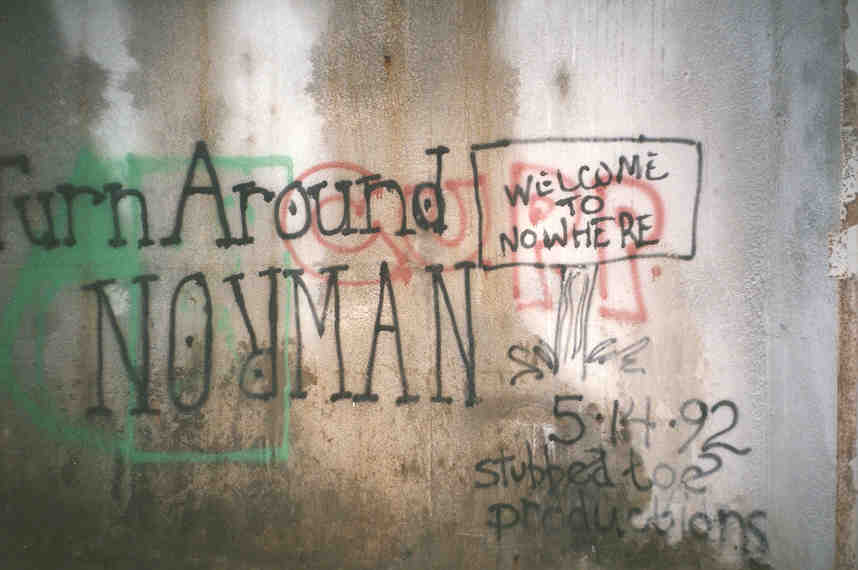 Turn Around
NORMAN
WELCOME
TO
NOWHERE
5·14·92
stubbed toe
productions